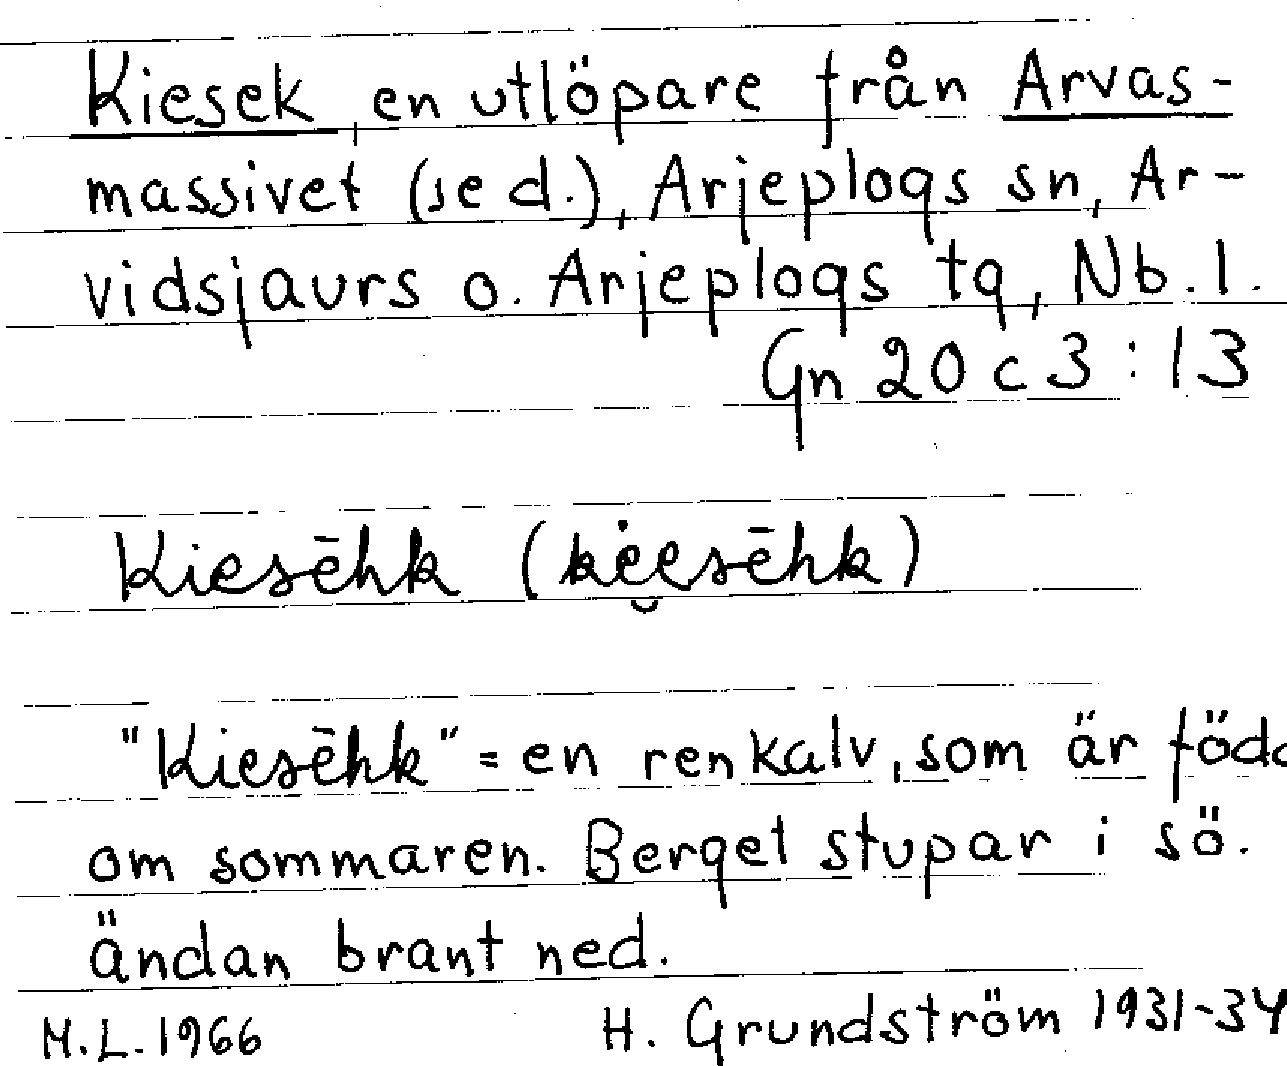 Kiesek, en utlöpare från Arvas-
massivet (se d.), Arjeplogs sn, Ar-
vidsjaurs o. Arjeplogs tg, Nb. l.
Gn 20 c 3 : 13
Kiesēhk (kėesēhk)
"Kiesēhk" = en renkalv, som är född
om sommaren. Berget stupar i sö.
ändan brant ned.
M.L. 1966 H. Grundström 1931-34